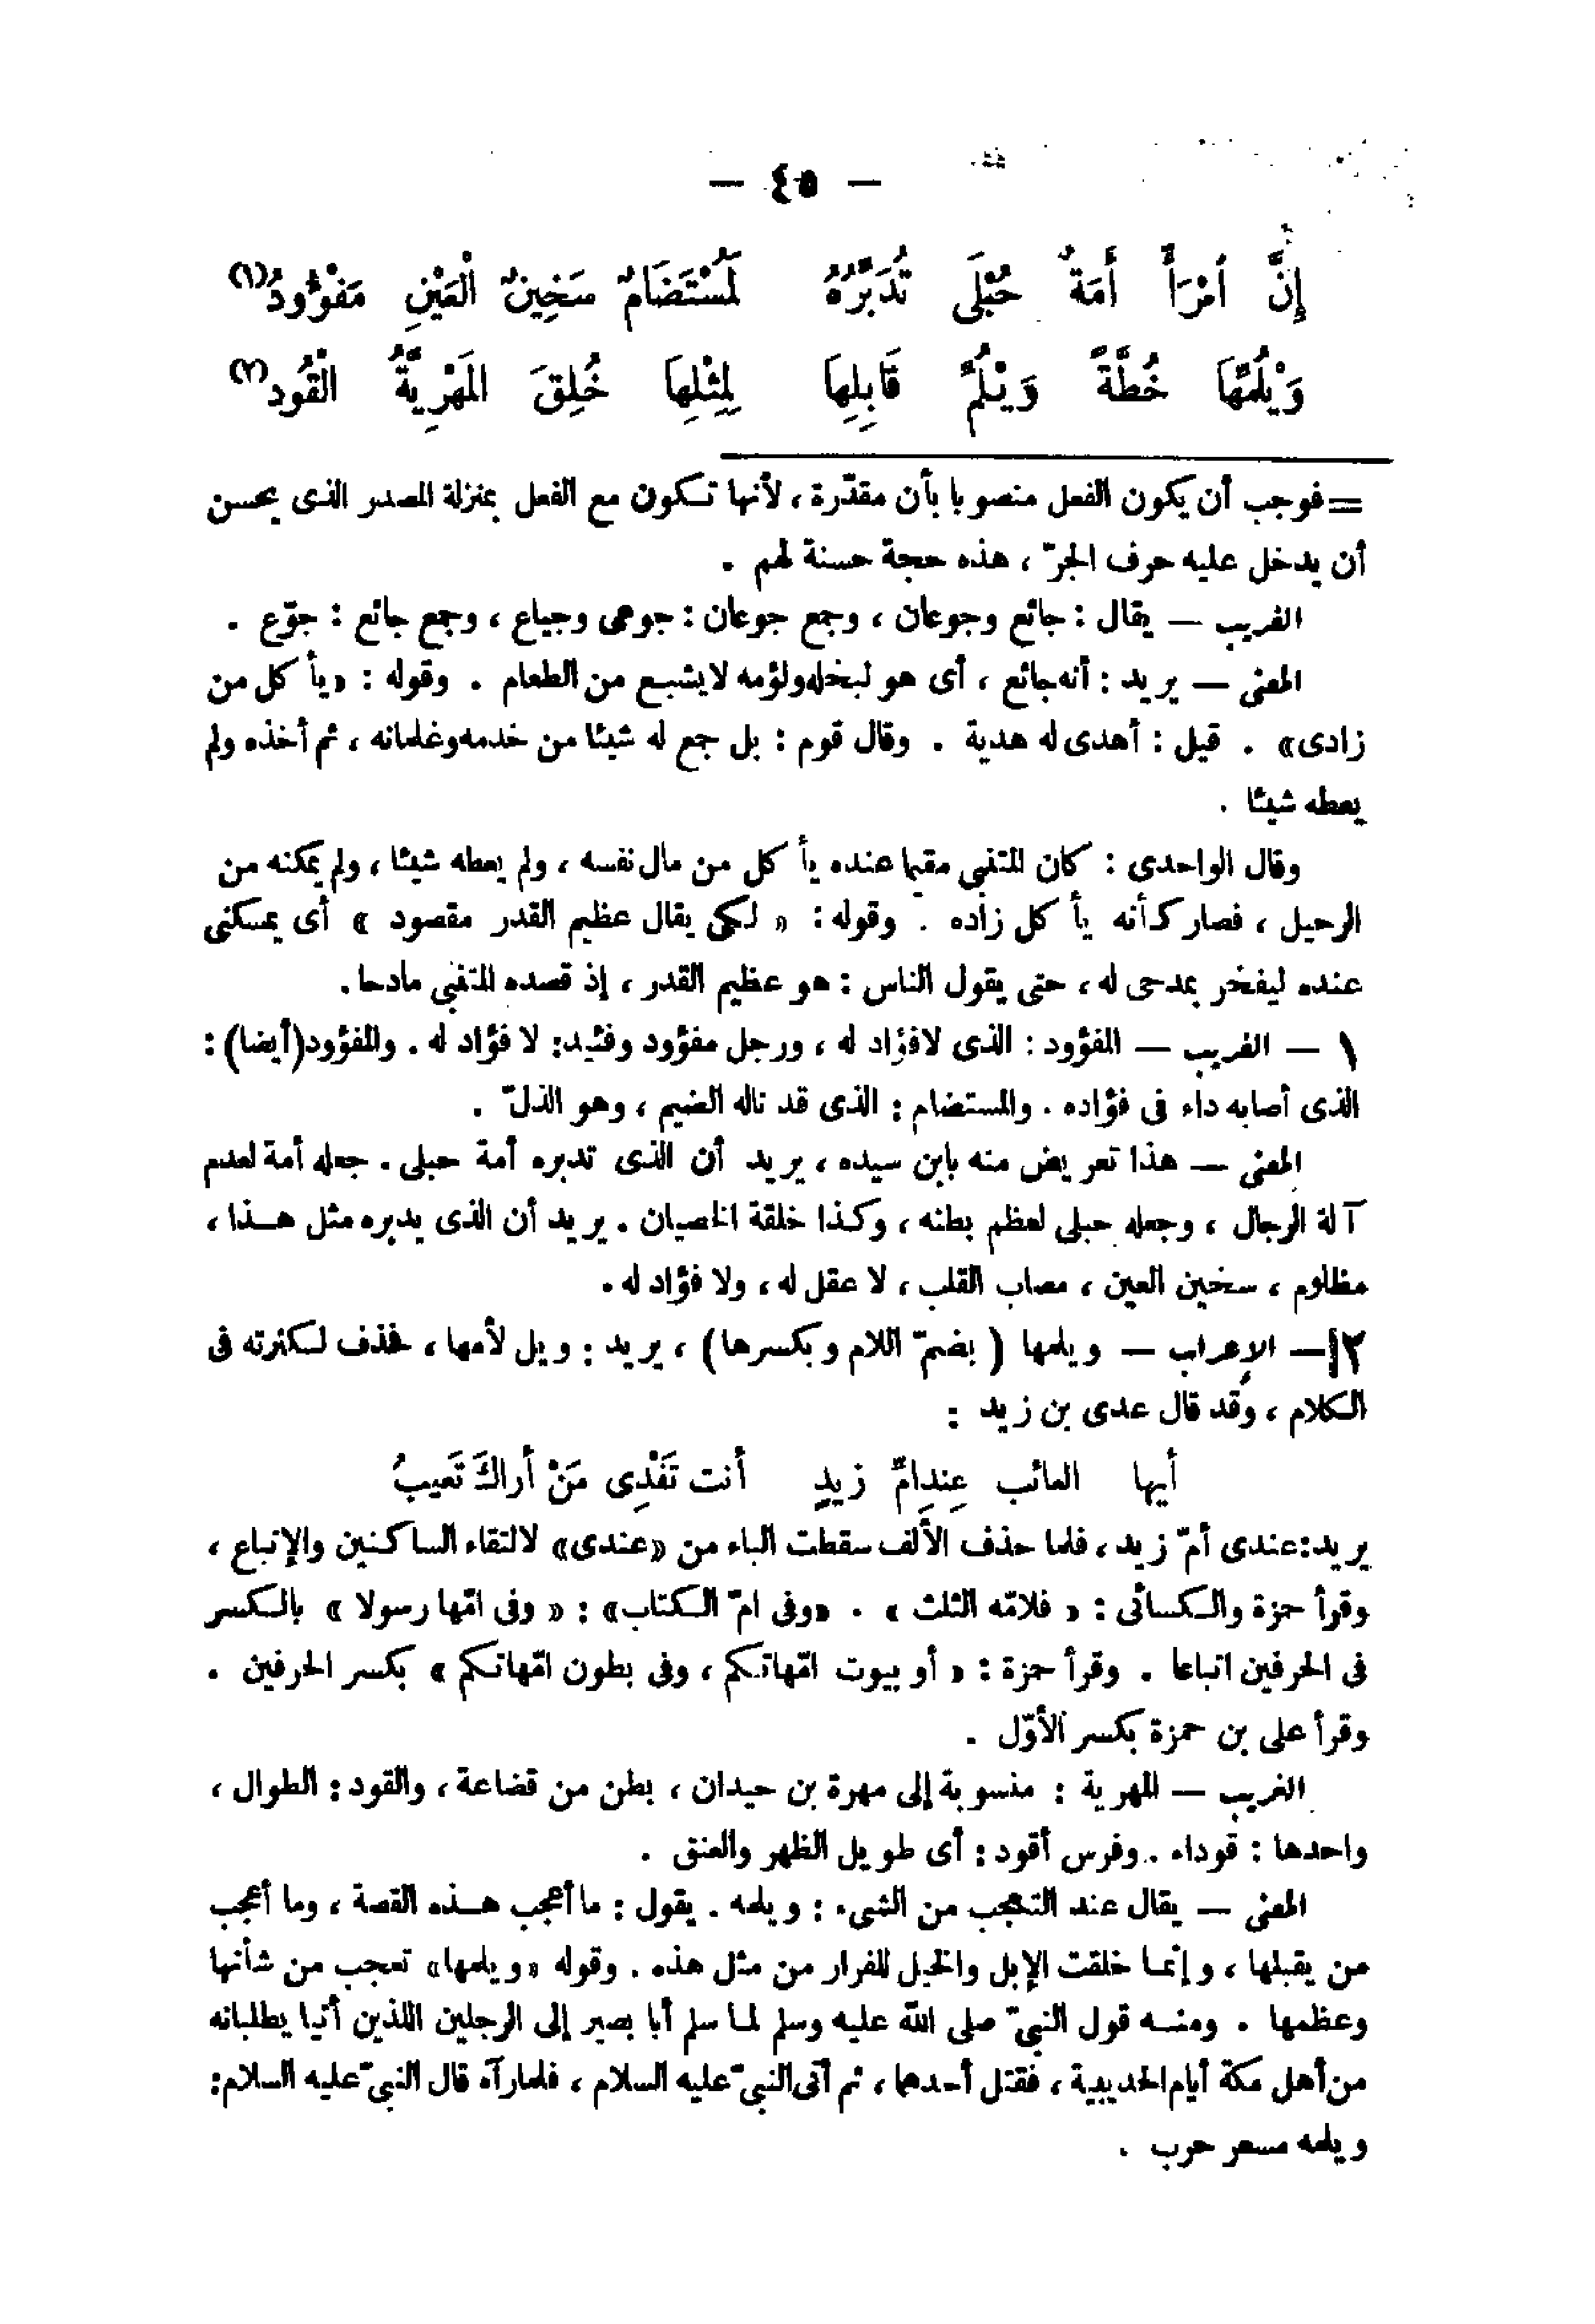 — ٤٥ —
إِنَّ امْرَأً أَمَةٌ حُبْلَى تُدَبِّرُهُ لَمُسْتَضَامٌ سَخِينُ الْعَيْنِ مَفْؤُودُ (١)
وَيْلُمِّهَا خُطَّةً وَيْلُمِّ قَابِلِهَا لِمِثْلِهَا خُلِقَ الْمَهْرِيَّةُ الْقُودُ (٢)
= فوجب أن يكون الفعل منصوبا بأن مقدّرة ، لأنها تكون مع الفعل بمنزلة المصدر الذى يحسن
أن يدخل عليه حرف الجرّ ، هذه حجة حسنة لهم .
الغريب — يقال : جائع وجوعان ، وجمع جوعان : جوعى وجياع ، وجمع جائع : جوّع .
المعنى — يريد : أنه جائع ، أى هو لبخله ولؤمه لا يشبع من الطعام . وقوله : «يأكل من
زادى» . قيل : أهدى له هدية . وقال قوم : بل جمع له شيئا من خدمه وغلمانه ، ثم أخذه ولم
يعطه شيئا .
وقال الواحدى : كان المتنبى مقيما عنده يأكل من مال نفسه ، ولم يعطه شيئا ، ولم يمكنه من
الرحيل ، فصار كأنه يأكل زاده . وقوله : « لكى يقال عظيم القدر مقصود » أى يمسكنى
عنده ليفخر بمدحى له ، حتى يقول الناس : هو عظيم القدر ، إذ قصده المتنبى مادحا .
١ — الغريب — المفؤود : الذى لا فؤاد له ، ورجل مفؤود وفئيد : لا فؤاد له . والمفؤود (أيضا) :
الذى أصابه داء فى فؤاده . والمستضام : الذى قد ناله الضيم ، وهو الذلّ .
المعنى — هذا تعريض منه بابن سيده ، يريد أن الذى تدبره أمة حبلى . جعله أمة لعدم
آلة الرجال ، وجعله حبلى لعظم بطنه ، وكذا خلقة الخصيان . يريد أن الذى يدبره مثل هذا ،
مظلوم ، سخين العين ، مصاب القلب ، لا عقل له ، ولا فؤاد له .
٢ — الإعراب — ويلمها ( بضمّ اللام وبكسرها ) ، يريد : ويل لأمها ، فحذف لكثرته فى
الكلام ، وقد قال عدى بن زيد :
أيها العائب عِندِامِّ زيدٍ أنت تَفْدِى مَنْ أراكَ تَعيبُ
يريد : عندى أمّ زيد ، فلما حذف الألف سقطت الياء من «عندى» لالتقاء الساكنين والإتباع ،
وقرأ حمزة والكسائى : « فلامّه الثلث » . «وفى امّ الكتاب» : « وفى امّها رسولا » بالكسر
فى الحرفين اتباعا . وقرأ حمزة : « أو بيوت امّهاتكم ، وفى بطون امّهاتكم » بكسر الحرفين .
وقرأ على بن حمزة بكسر الأوّل .
الغريب — المهرية : منسوبة إلى مهرة بن حيدان ، بطن من قضاعة ، والقود : الطوال ،
واحدها : قوداء . وفرس أقود : أى طويل الظهر والعنق .
المعنى — يقال عند التعجب من الشىء : ويلمه . يقول : ما أعجب هذه القصة ، وما أعجب
من يقبلها ، وإنما خلقت الإبل والخيل للفرار من مثل هذه . وقوله «ويلمها» تعجب من شأنها
وعظمها . ومنه قول النبىّ صلى الله عليه وسلم لما سلم أبا بصير إلى الرجلين اللذين أتيا يطلبانه
من أهل مكة أيام الحديبية ، فقتل أحدهما ، ثم أتى النبىّ عليه السلام ، فلما رآه قال النبىّ عليه السلام :
ويلمه مسعر حرب .